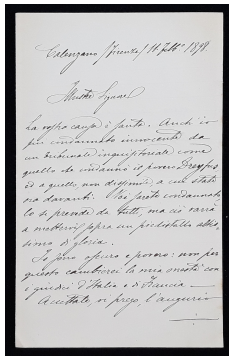 Calenzano (Firenze) 16 Febbº 1898.
Illustre Signore
La vostra causa è santa. Anch'io
fui condannato innocente da
un tribunale inquisitoriale come
quello che condannò il povero Dreyfus
ed a quello, non dissimile, a cui siete
ora davanti. Voi sarete condannato:
lo si prende da tutti, ma ciò varrà
a mettervi sopra un piedistallo altis-
simo di gloria.
Io sono oscuro e povero: non per
questo cambierei la mia onestà con
i giudici d'Italia e di Francia.
Accettate, vi prego, l'augurio